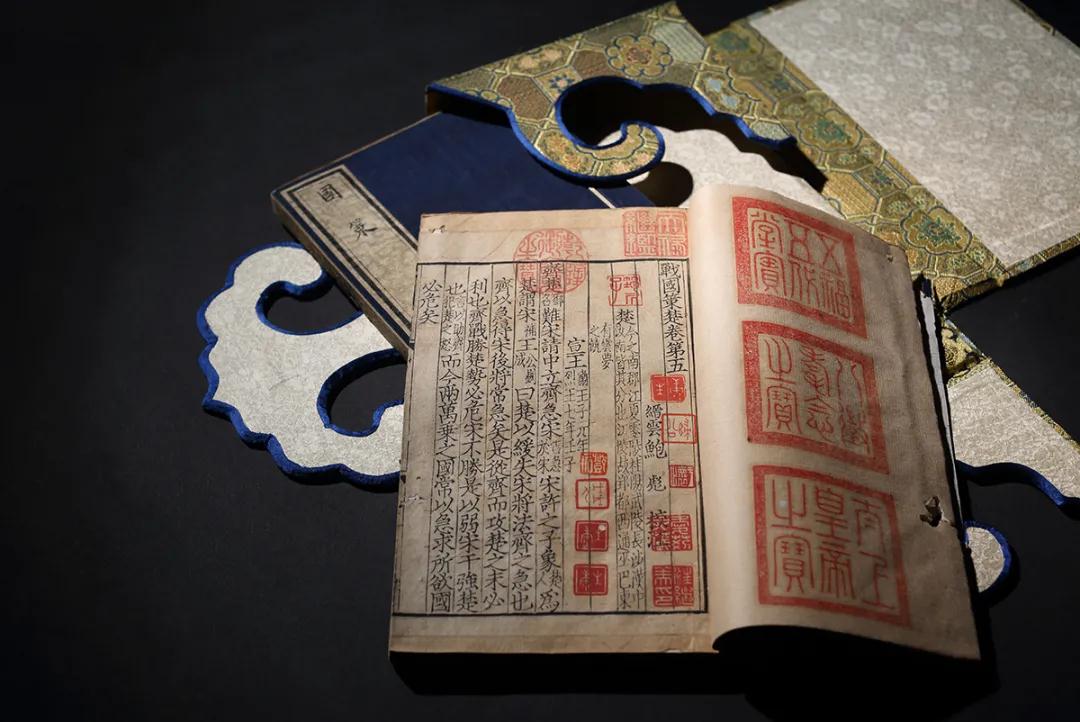 國策
五福五代堂寶
八徵耄念之寶
太上皇帝之寶
天祿繼鑑
乾隆御覽之寶
戰國策楚卷第五
縉雲鮑 彪 校注
楚
今之南郡江夏零陵桂陽武陵長沙漢中
宣王
齊楚難宋請中立齊急宋宋許之子象為
楚謂宋王曰楚以緩失宋將法齊之急也
齊以急得宋後將常急矣是從齊而攻楚之未必
利也齊戰勝楚勢必危宋不勝是以弱宋干強楚
也而令兩萬乘之國常以急求所欲國
必危矣